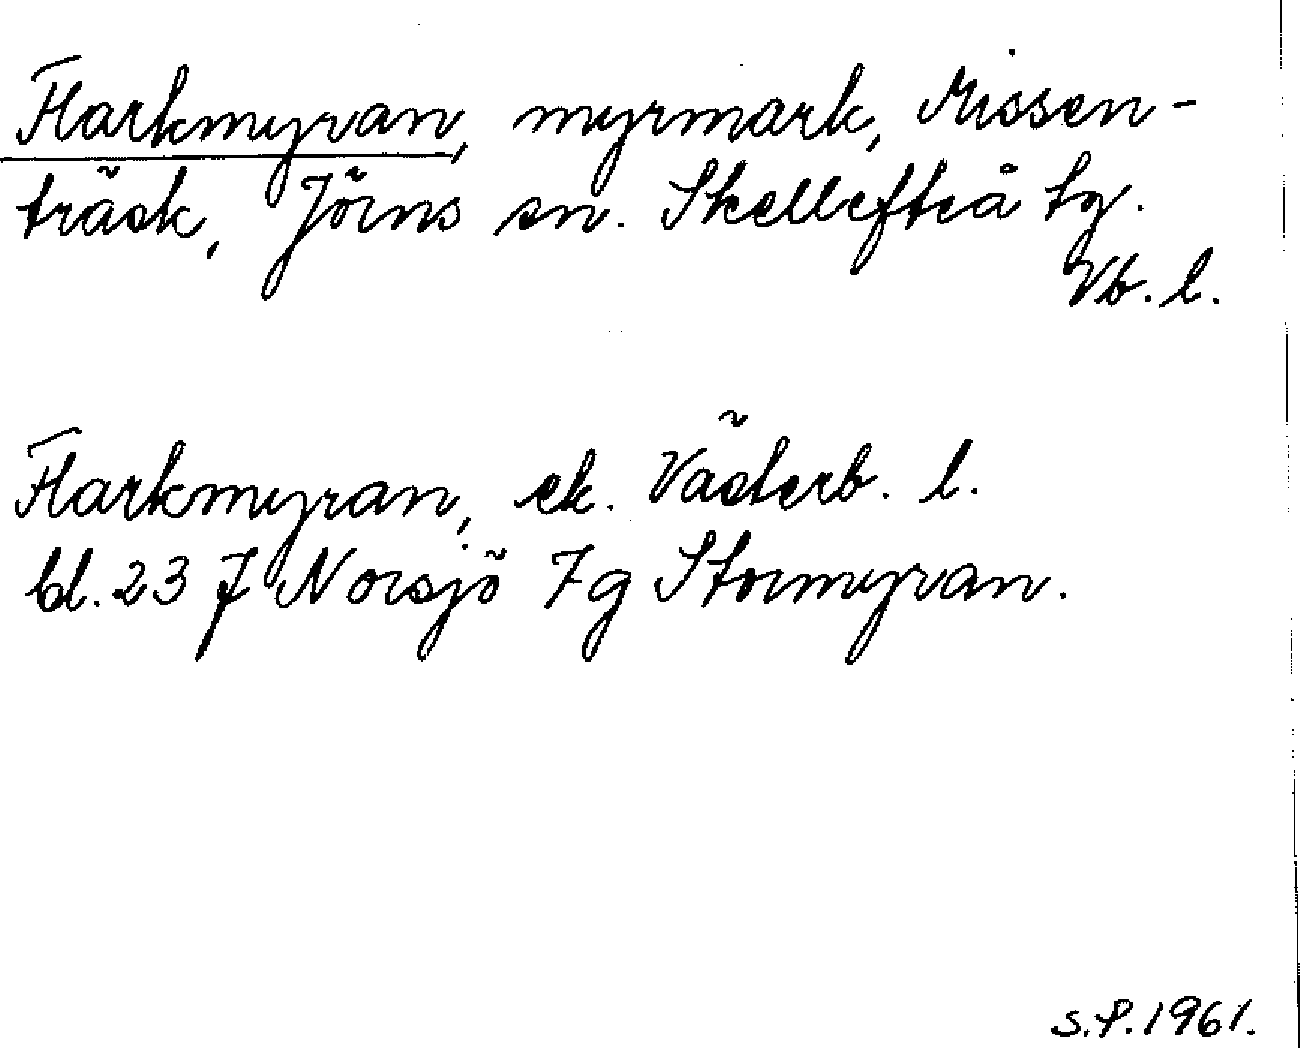 Flarkmyran, myrmark, Missen-
träsk, Jörns sn. Skellefteå tg.
Vb. l.
Flarkmyran, ek. Västerb. l.
bl. 23 J Norsjö 7g Stormyran.
S.P. 1961.